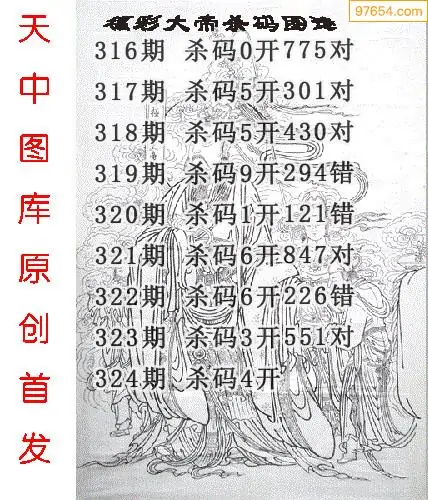 97654.com
福彩大帝杀码图谜
316期 杀码0开775对
317期 杀码5开301对
318期 杀码5开430对
319期 杀码9开294错
320期 杀码1开121错
321期 杀码6开847对
322期 杀码6开226错
323期 杀码3开551对
324期 杀码4开
天中图库原创首发